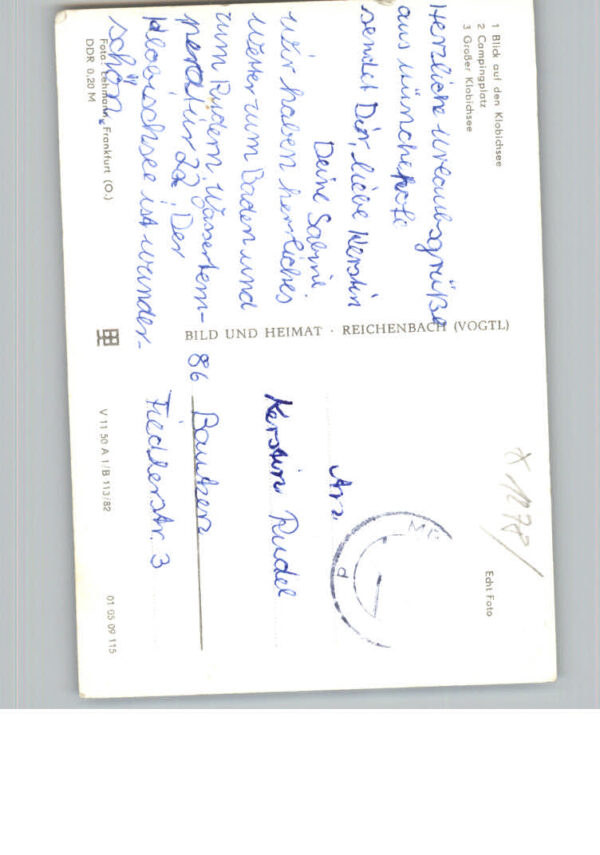 1 Blick auf den Klobichsee
2 Campingplatz
3 Großer Klobichsee
Herzliche Urlaubsgrüße
aus Münchehofe
sendet Dir, liebe Kerstin
Deine Sabine.
Wir haben herrliches
Wetter zum Baden und
zum Rudern. Wassertem-
peratur 22°. Der
Klobichsee ist wunder-
schön.
Foto: Lehmann, Frankfurt (O.)
DDR 0,20 M
BILD UND HEIMAT · REICHENBACH (VOGTL)
V 11 50 A 1/B 113/82
01 05 09 115
Echt Foto
An
Kerstin Rudel
86 Bautzen
Fiedlerstr. 3